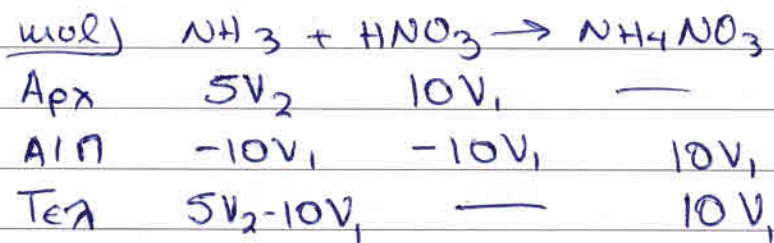 mol) NH3 + HNO3 → NH4NO3
Αρχ 5V2 10V1 —
Α/Π -10V1 -10V1 10V1
Τελ 5V2-10V1 — 10V1